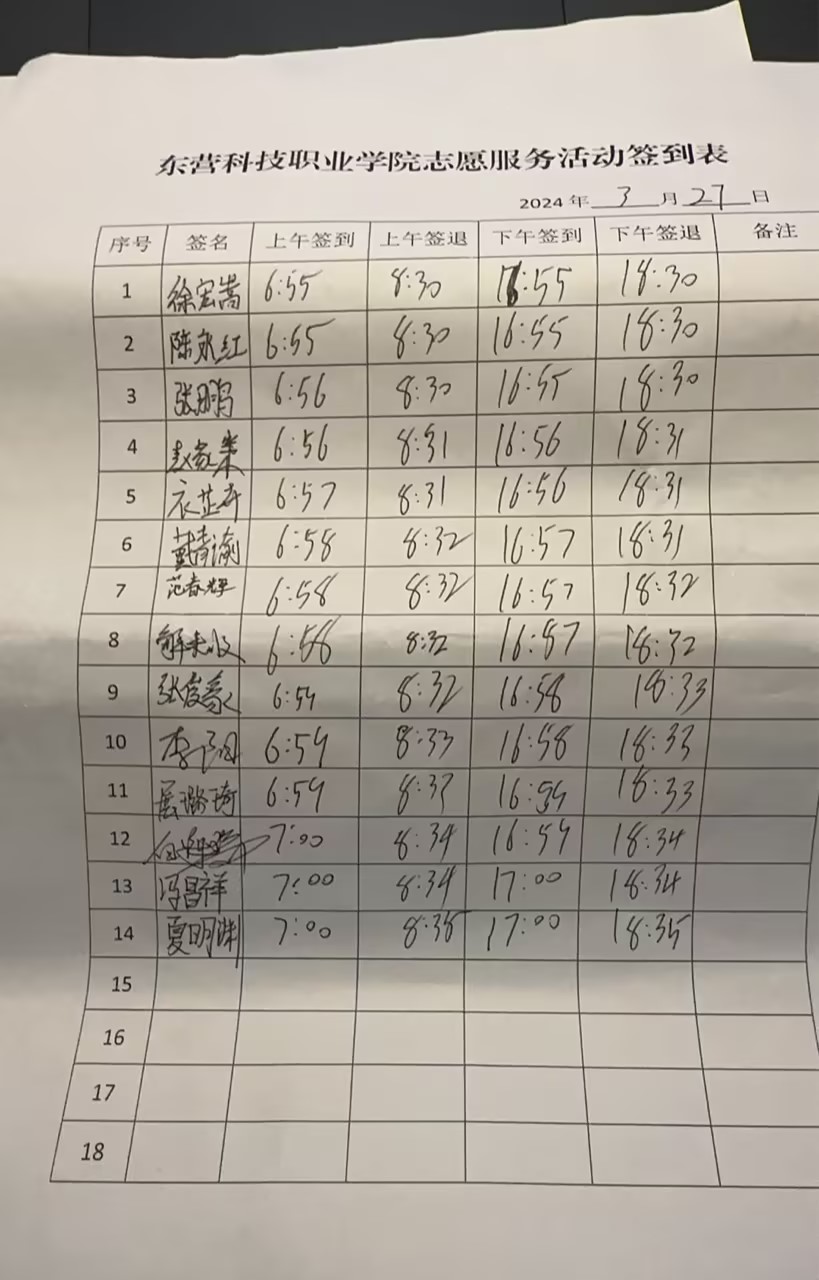 东营科技职业学院志愿服务活动签到表
2024年 3 月 27 日
序号 签名 上午签到 上午签退 下午签到 下午签退 备注
1 徐宏嵩 6:55 8:30 16:55 18:30
2 陈永红 6:55 8:30 16:55 18:30
3 张鹏 6:56 8:30 16:55 18:30
4 赵家 6:56 8:31 16:56 18:31
5 衣芷卉 6:57 8:31 16:56 18:31
6 戴清渝 6:58 8:32 16:57 18:31
7 范春辉 6:58 8:32 16:57 18:32
8 解 6:58 8:32 16:57 18:32
9 张俊豪 6:59 8:32 16:58 18:33
10 李 6:59 8:33 16:58 18:33
11 璐琦 6:59 8:33 16:59 18:33
12 7:00 8:34 16:59 18:34
13 冯昌祥 7:00 8:34 17:00 18:34
14 夏明渊 7:00 8:35 17:00 18:35
15
16
17
18